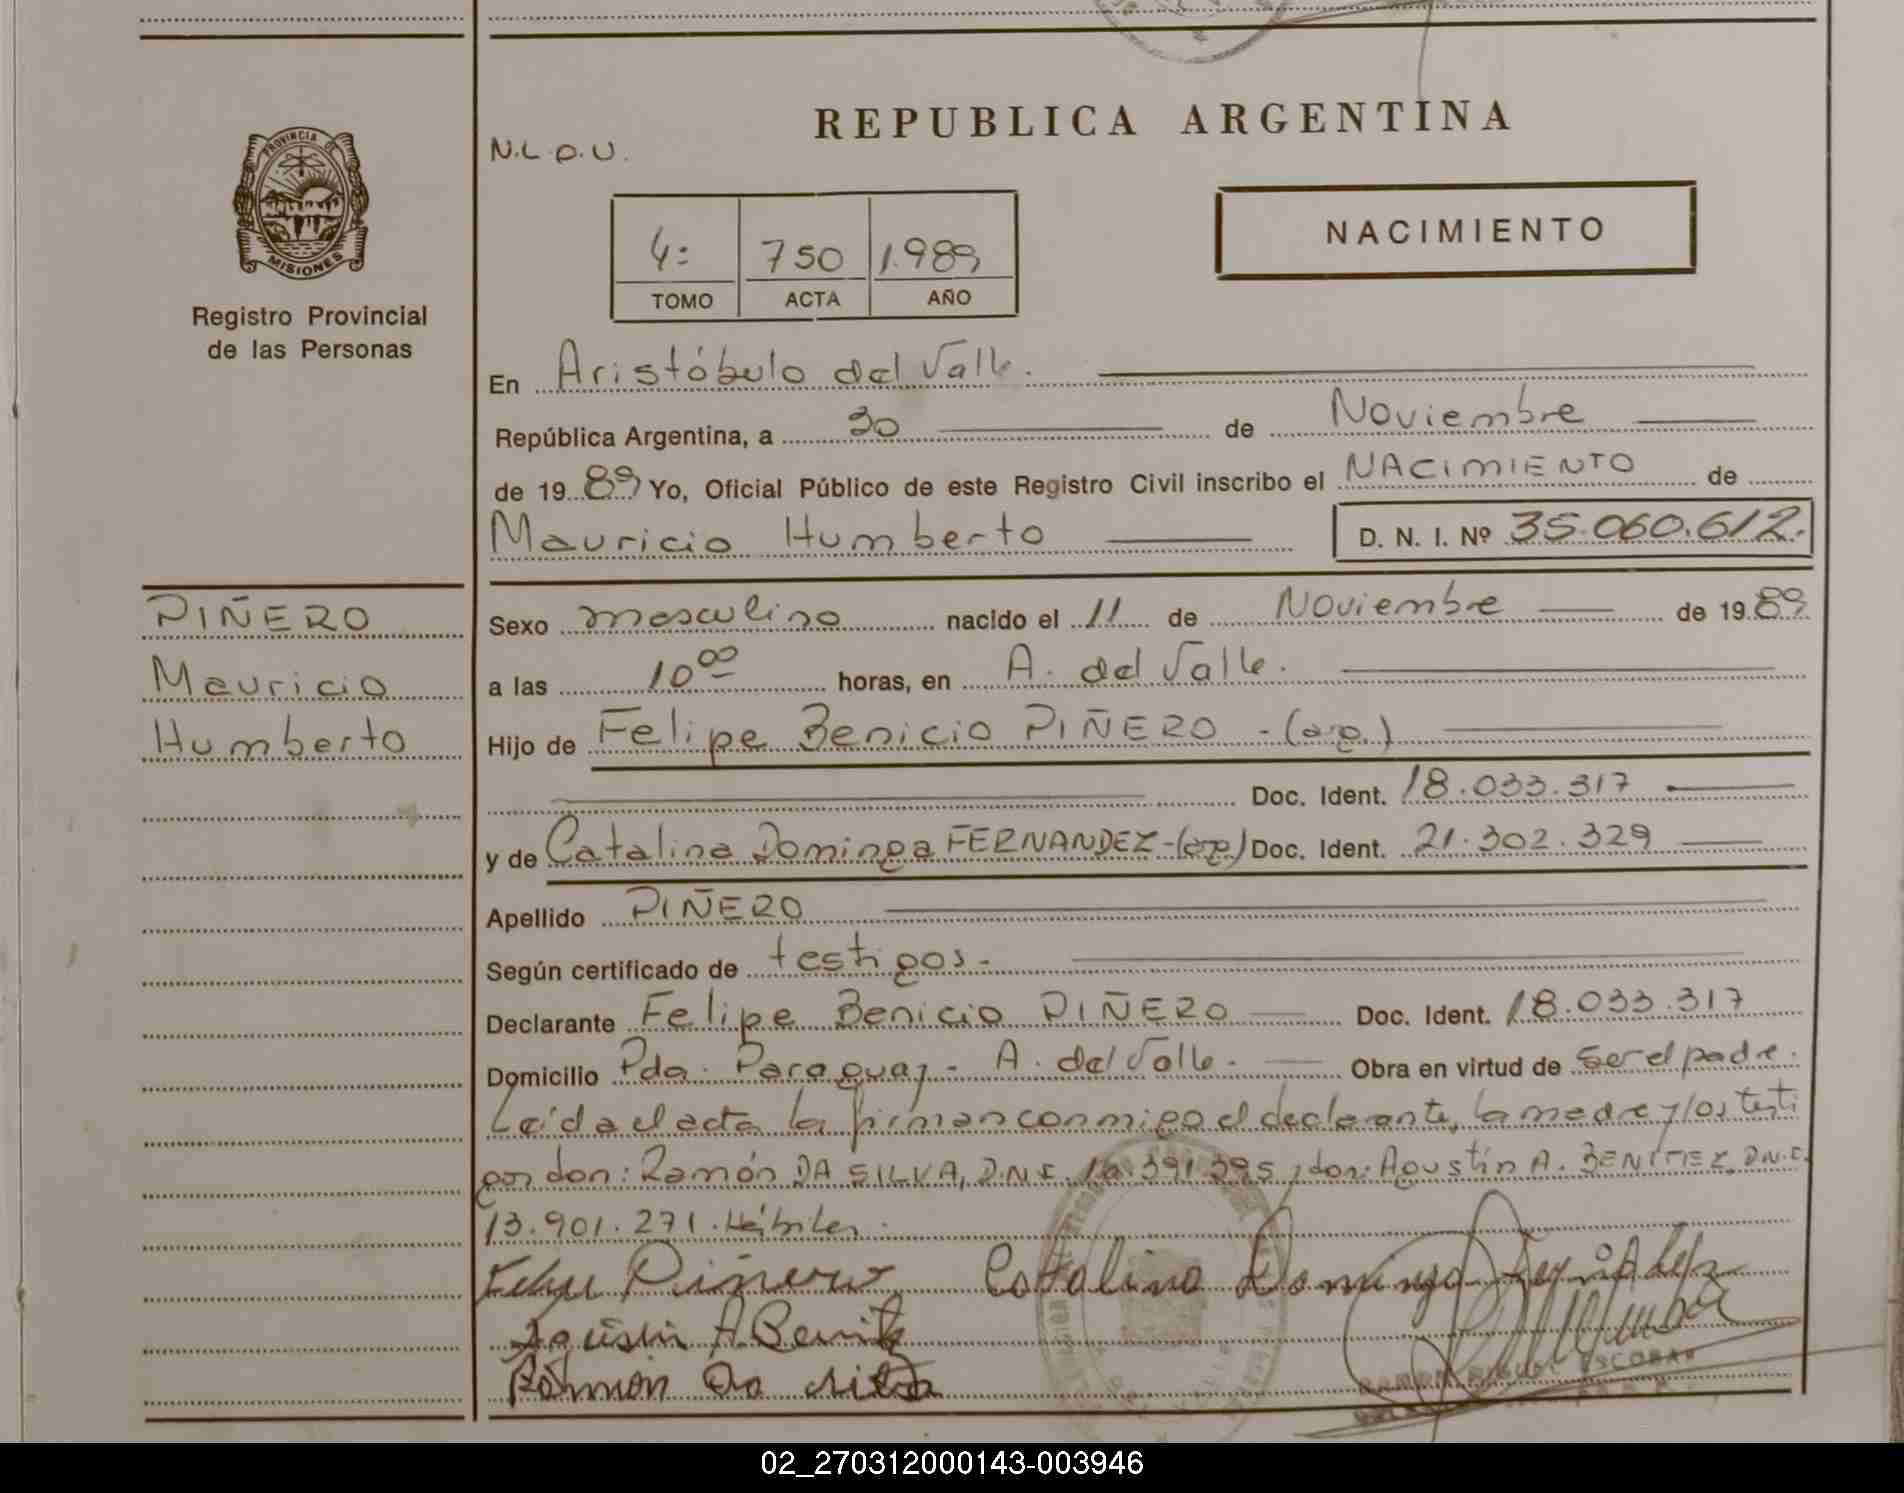 REPUBLICA ARGENTINA
N.L.O.U.
NACIMIENTO
4: 750 1.989
TOMO ACTA AÑO
PROVINCIA DE
MISIONES
Registro Provincial
de las Personas
En Aristóbulo del Valle.
República Argentina, a 30 de Noviembre
de 1989 Yo, Oficial Público de este Registro Civil inscribo el NACIMIENTO de
Mauricio Humberto D. N. I. Nº 35.060.612.
PIÑERO
Mauricio
Humberto
Sexo masculino nacido el 11 de Noviembre de 1989
a las 10 00 horas, en A. del Valle.
Hijo de Felipe Benicio PIÑERO - (arg.)
Doc. Ident. 18.033.317
y de Catalina Dominga FERNANDEZ - (arg.) Doc. Ident. 21.302.329
Apellido PIÑERO
Según certificado de testigos -
Declarante Felipe Benicio PIÑERO Doc. Ident. 18.033.317
Domicilio Pda. Paraguay - A. del Valle - Obra en virtud de ser el padre.
Leída el acta la firman conmigo el declarante, la madre y los testi
gos don: Ramón DA SILVA, D.N.I. 10.391.395 y don: Agustín A. BENITEZ, D.N.I.
13.901.271. Hábiles.
Felipe Piñero Catalina Dominga
Agustin A Benitez
Ramon Da Silva
ESCOBAR
02_270312000143-003946